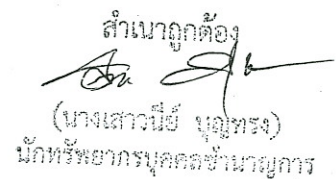 สำเนาถูกต้อง
(นางเสาวนีย์ บุญทรง)
นักทรัพยากรบุคคลชำนาญการ